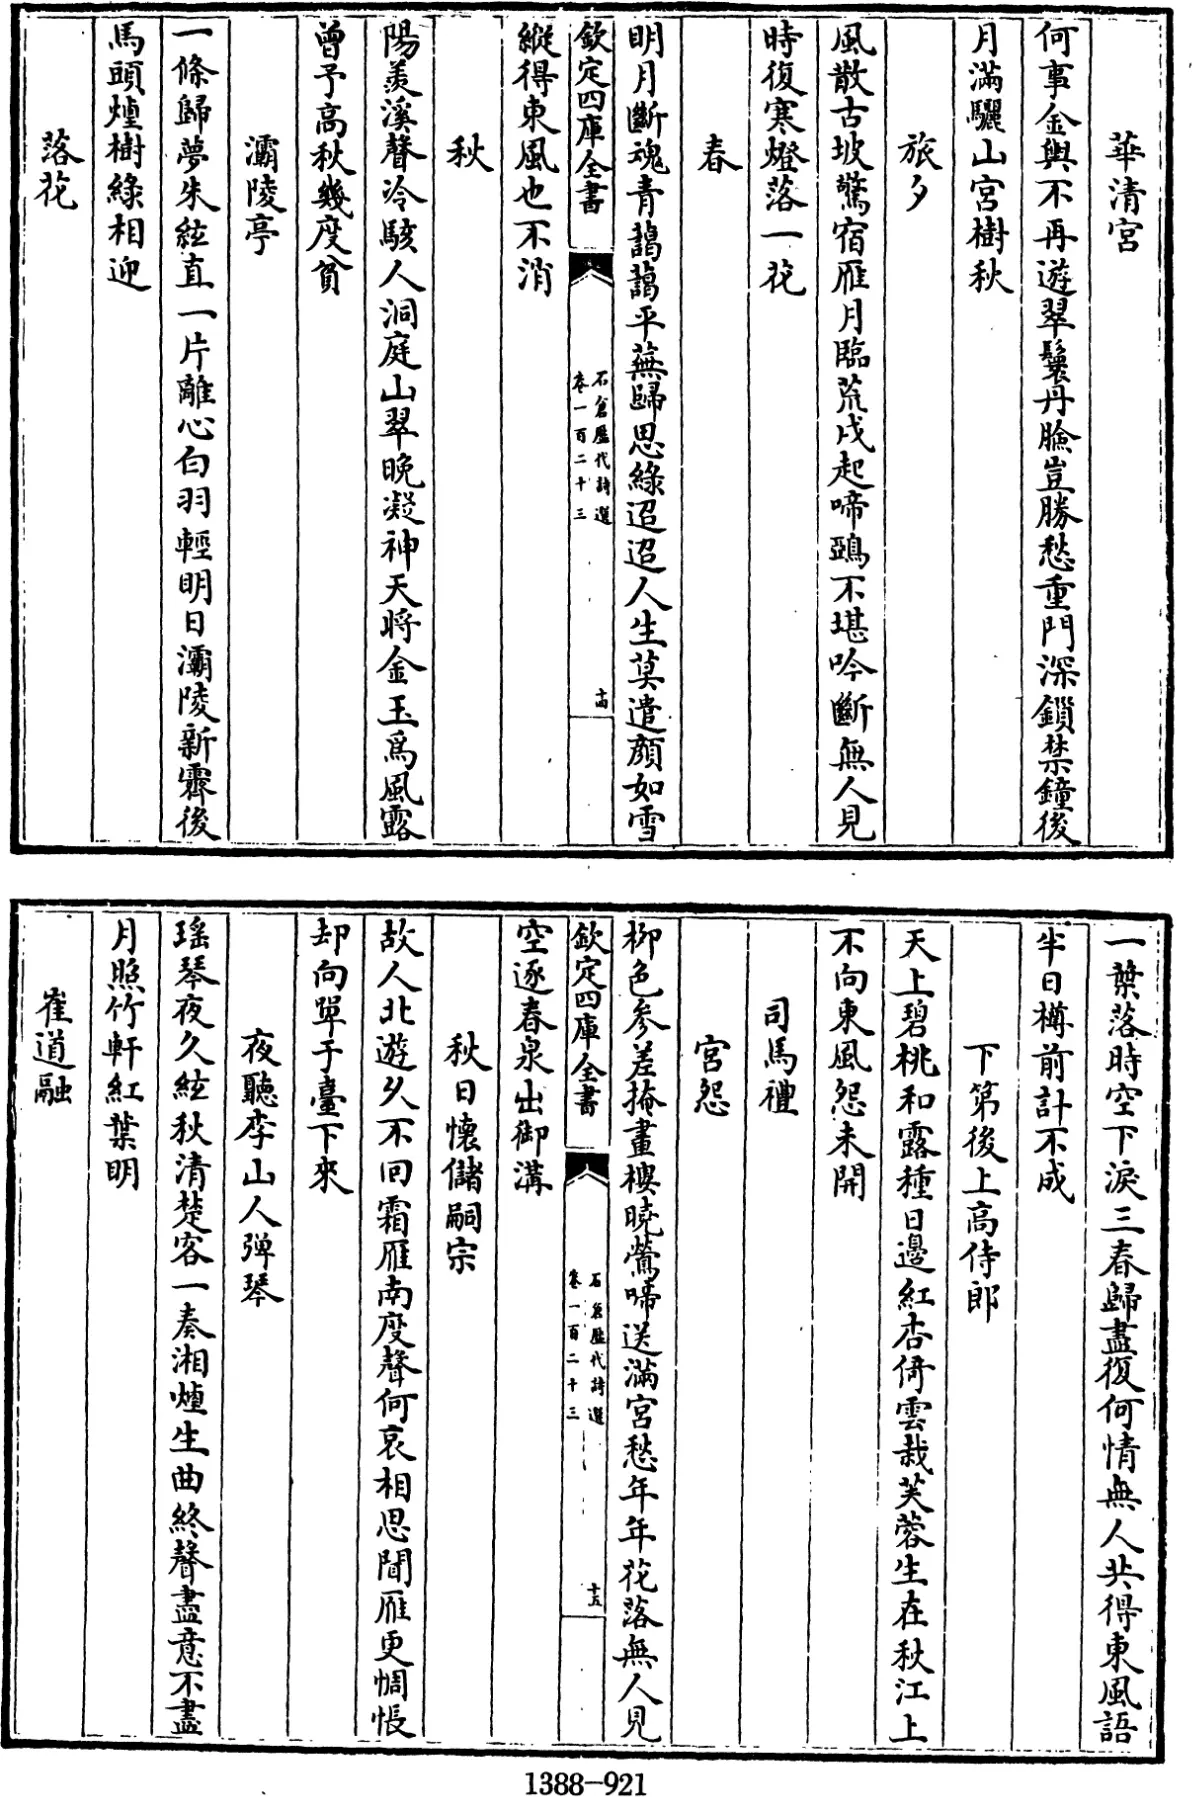 華清宮
何事金輿不再遊翠鬟丹臉豈勝愁重門深鎖禁鐘後
月滿驪山宮樹秋
旅夕
風散古坡驚宿雁月臨荒戍起啼鵶不堪吟斷無人見
時復寒燈落一花
春
明月斷魂青靄靄平蕪歸思綠迢迢人生莫遣顏如雪
欽定四庫全書
石倉歷代詩選
卷一百二十三
十四
縱得東風也不消
秋
陽羨溪聲冷駭人洞庭山翠晚凝神天將金玉爲風露
曾予高秋幾度貧
灞陵亭
一條歸夢朱絃直一片離心白羽輕明日灞陵新霽後
馬頭煙樹綠相迎
落花
一葉落時空下淚三春歸盡復何情無人共得東風語
半日樽前計不成
下第後上高侍郎
天上碧桃和露種日邊紅杏倚雲栽芙蓉生在秋江上
不向東風怨未開
司馬禮
宮怨
柳色參差掩畫樓曉鶯啼送滿宮愁年年花落無人見
欽定四庫全書
石倉歷代詩選
卷一百二十三
十五
空逐春泉出御溝
秋日懷儲嗣宗
故人北遊久不回霜雁南度聲何哀相思聞雁更惆悵
却向單于臺下來
夜聽李山人彈琴
瑤琴夜久絃秋清楚客一奏湘煙生曲終聲盡意不盡
月照竹軒紅葉明
崔道融
1388-921